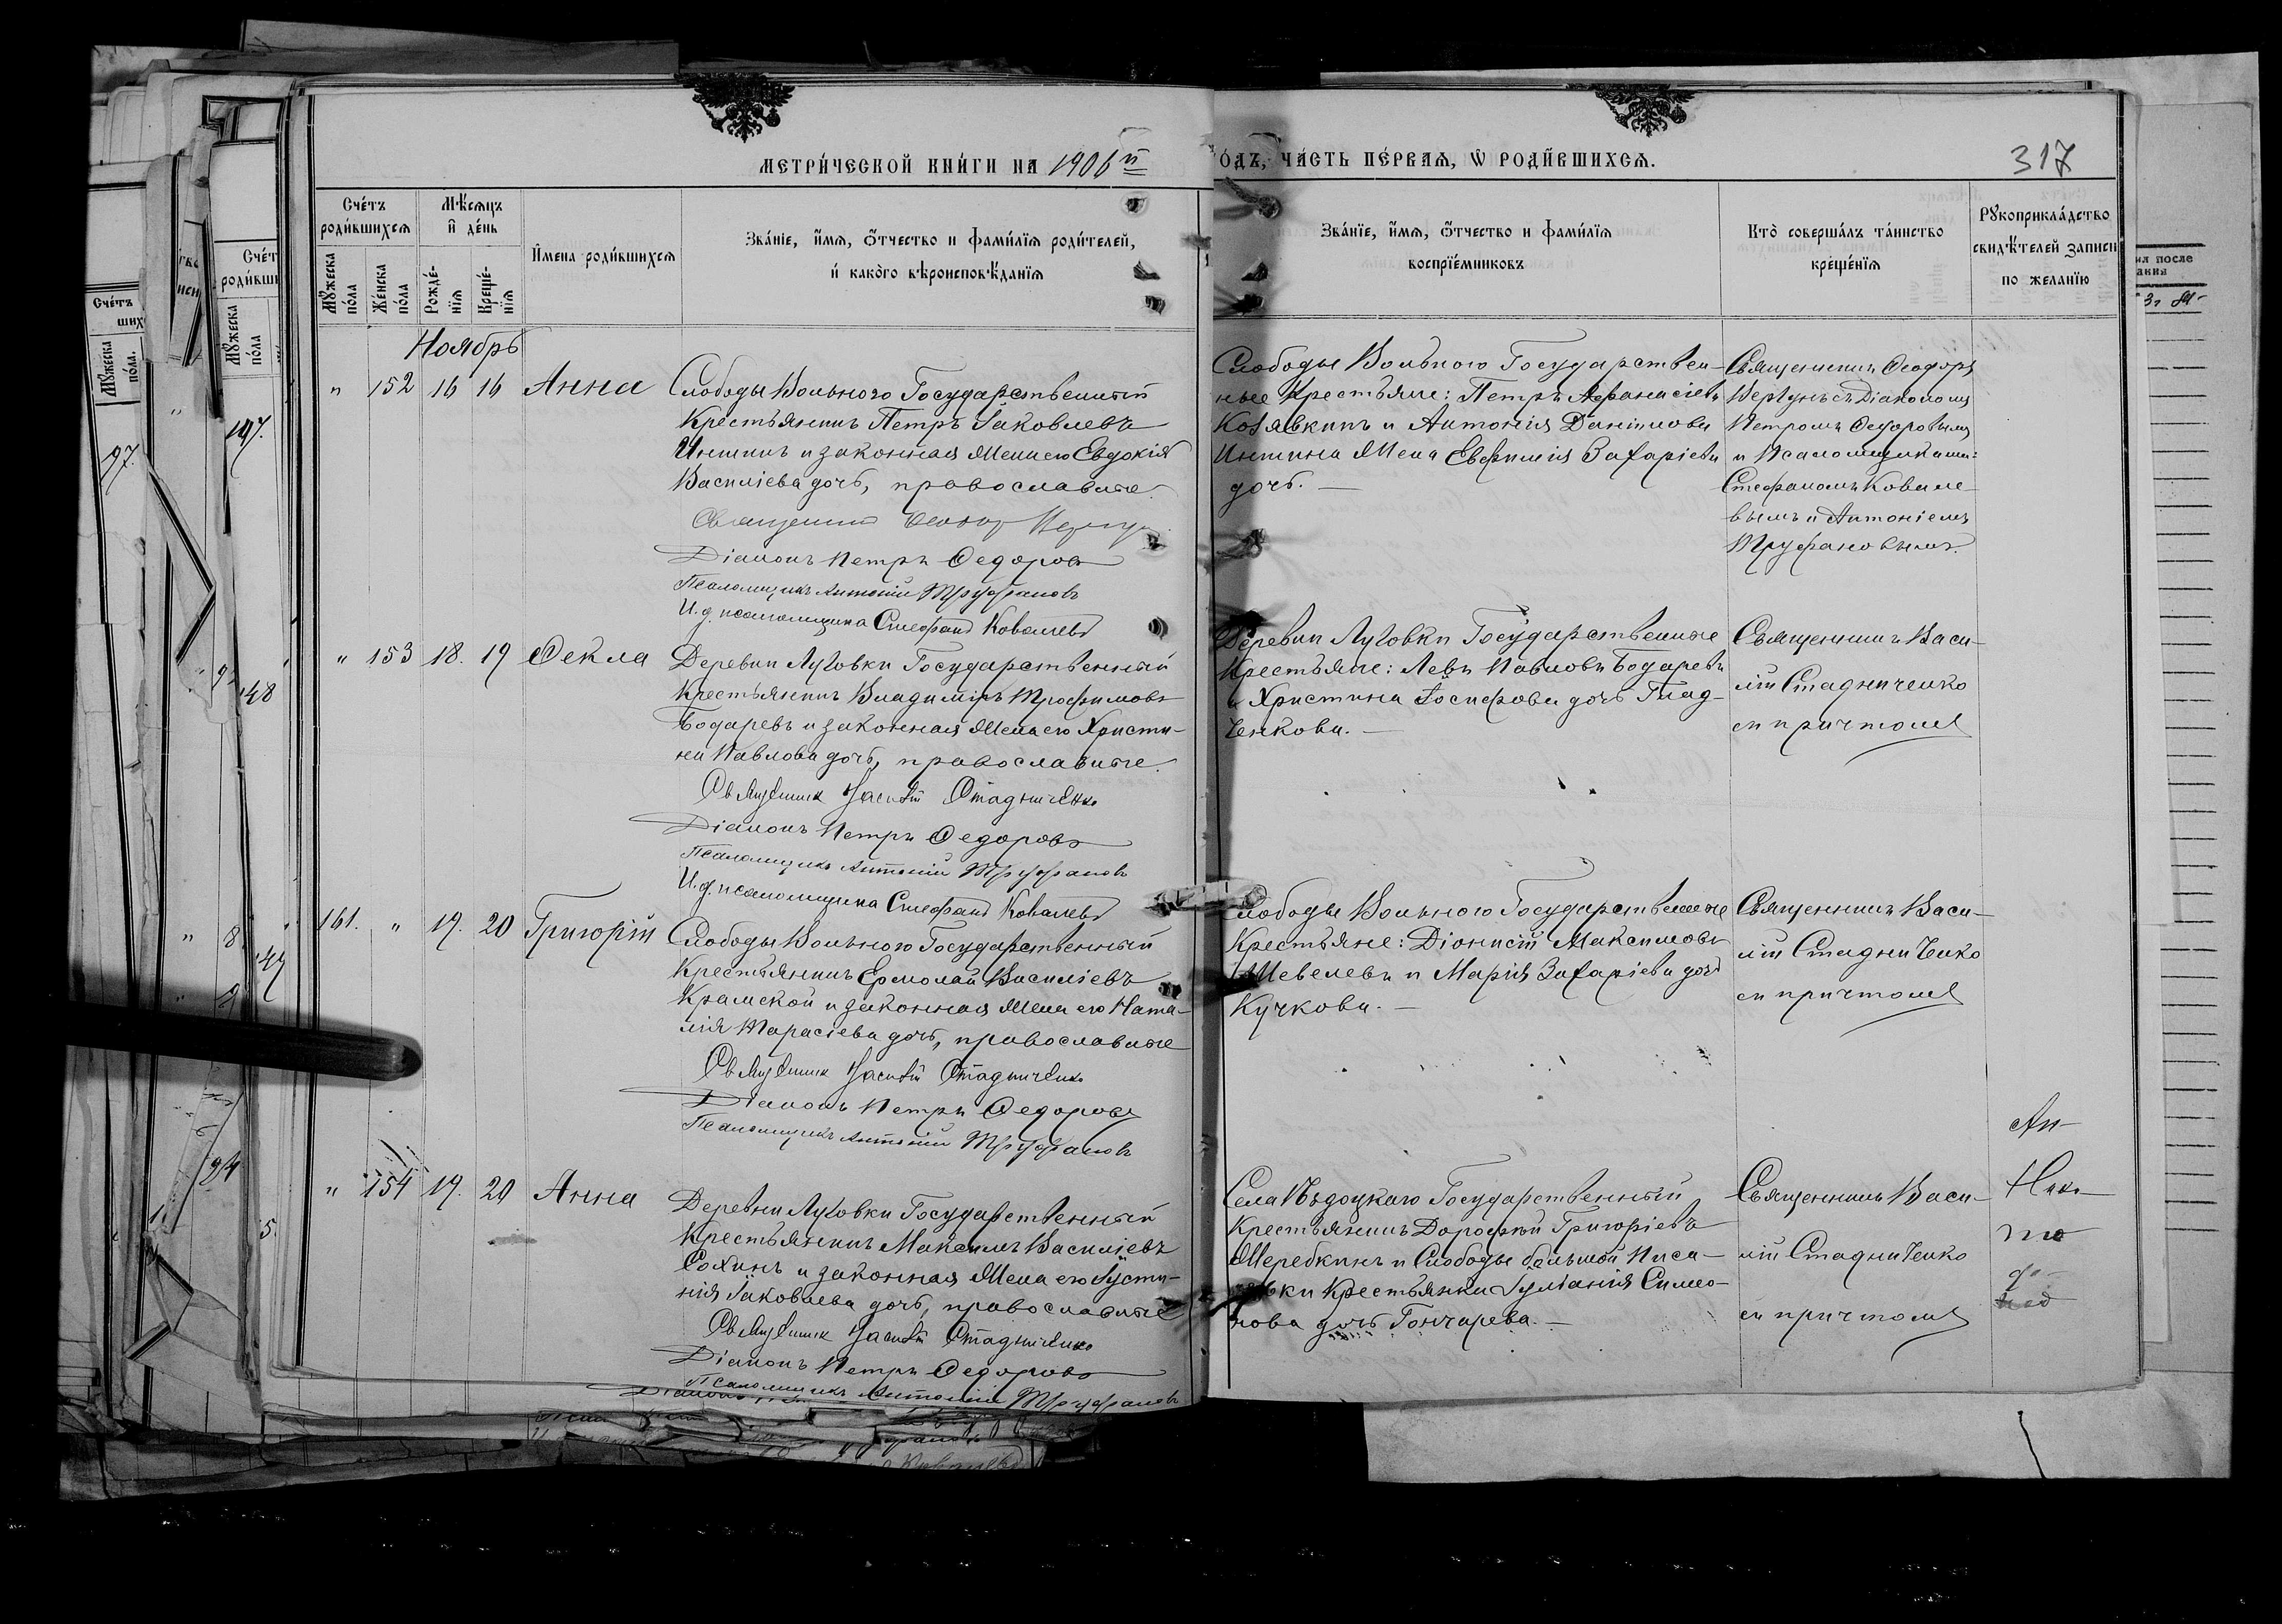 МЕТРИЧЕСКОЙ КНИГИ НА 1906 й
ОДЪ, ЧАСТЬ ПЕРВАЯ, Ѡ РОДИВШИХСЯ.
317
Счетъ родившихся
Мѣсяцъ и день
Имена родившихся
Званіе, имя, отчество и фамилія родителей,
и какого вѣроисповѣданія
Мужеска пола
Женска пола
Рожденія
Крещенія
Званіе, имя, отчество и фамилія
воспріемниковъ
Кто совершалъ таинство
крещенія
Рукоприкладство
свидѣтелей записи
по желанію
Ноябрь
" 152 16 16 Анна
Слободы Вольного Государственный
Крестьянинъ Петръ Іаковлевъ
и законная жена его Евдокія
Василіева дочь, православные.
Діаконъ Петръ Ѳедоровъ
Псаломщикъ Антоній Труфановъ
И. д. псаломщика Стефанъ Ковалевъ
Слободы Вольного Государствен-
ные Крестьяне: Петръ Аѳанасіевъ
Козявкинъ и Антонія Даніилова
жена Евфимія Захаріева
дочь. —
Священникъ Ѳеодоръ
съ Діакономъ
Петромъ Ѳедоровымъ
и Псаломщиками:
Стефаномъ Ковале-
вымъ и Антоніемъ
Труфановымъ.
" 153 18. 19 Ѳекла
Деревни Луговки Государственный
Крестьянинъ Владиміръ Трофимовъ
Бодаревъ и законная жена его Христи-
на Павлова дочь, православные.
Священник Василій Стадниченко
Діаконъ Петръ Ѳедоровъ
Псаломщикъ Антоній Труфановъ
И. д. псаломщика Стефанъ Ковалевъ
Деревни Луговки Государственные
Крестьяне: Левъ Павловъ Бодаревъ
и Христина Іосифова дочь Глад-
ченкова. —
Священникъ Васи-
лій Стадниченко
съ причтомъ
161. " 19. 20 Григорій
Слободы Вольного Государственный
Крестьянинъ Ермолай Василіевъ
Крамской и законная жена его Ната-
лія Тарасіева дочь, православные
Священник Василій Стадниченко
Діаконъ Петръ Ѳедоровъ
Псаломщикъ Антоній Труфановъ
Слободы Вольного Государственные
Крестьяне: Діонисій Максимовъ
Шевелевъ и Марія Захаріева дочь
Кучкова. —
Священникъ Васи-
лій Стадниченко
съ причтомъ
" 154 19. 20 Анна
Деревни Луговки Государственный
Крестьянинъ Максимъ Василіевъ
Сохинъ и законная жена его Іусти-
нія Іаковлева дочь, православные
Священник Василій Стадниченко
Діаконъ Петръ Ѳедоровъ
Псаломщикъ Антоній Труфановъ
Села Государственный
Крестьянинъ Дороѳей Григоріевъ
Жеребкинъ и Слободы большой Писа-
ревки Крестьянка Іуліанія Симео-
нова дочь Гончарева. —
Священникъ Васи-
лій Стадниченко
съ причтомъ